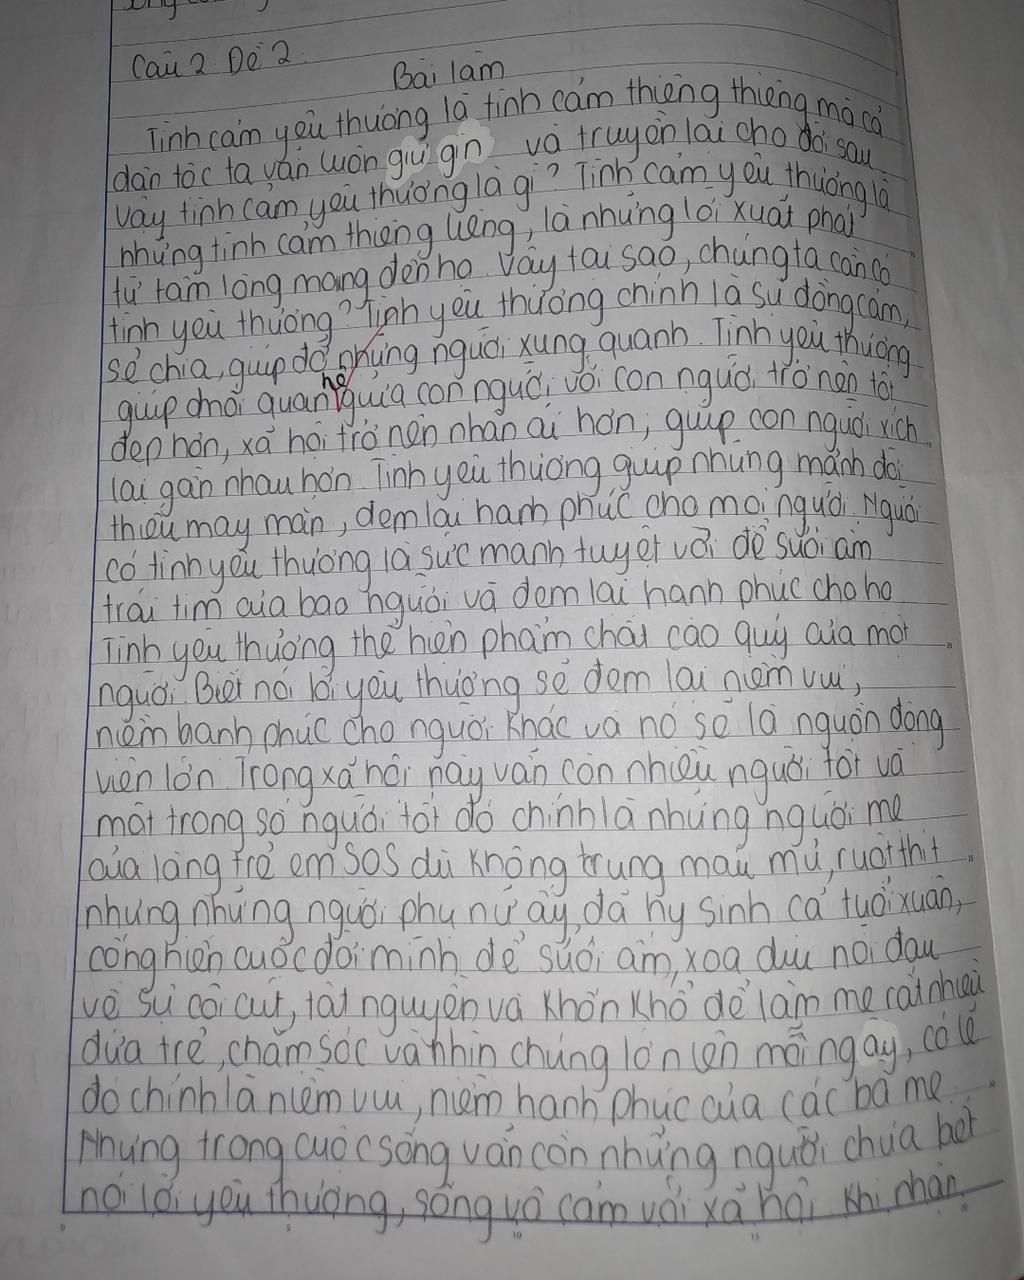 Câu 2. Đề 2.
Bài làm
Tình cảm yêu thương là tình cảm thiêng thiêng mà cả
dân tộc ta vẫn luôn giữ gìn và truyền lại cho đời sau
vậy tình cảm yêu thương là gì? Tình cảm yêu thương là
những tình cảm thiêng liêng, là những lời xuất phát
từ tấm lòng mang đến họ. Vậy tại sao, chúng ta cần có
tình yêu thương? Tình yêu thương chính là sự đồng cảm,
sẻ chia, giúp đỡ những người xung quanh. Tình yêu thương
giúp cmối quan hệ giữa con người với con người trở nên tốt
đẹp hơn, xã hội trở nên nhân ái hơn, giúp con người xích
lại gần nhau hơn. Tình yêu thương giúp những mảnh đời
thiếu may mắn, đem lại hạnh phúc cho mọi người. Người
có tình yêu thương là sức mạnh tuyệt vời để sưởi ấm
trái tim của bao người và đem lại hạnh phúc cho họ
Tình yêu thương thể hiện phẩm chất cao quý của một
người. Biết nói lời yêu thương sẽ đem lại niềm vui,
niềm hạnh phúc cho người khác và nó sẽ là nguồn động
viên lớn. Trong xã hội này vẫn còn nhiều người tốt và
một trong số người tốt đó chính là những người mẹ
của làng trẻ em SOS dù không trung máu mủ, ruột thịt
nhưng những người phụ nữ ấy, đã hy sinh cả tuổi xuân,
cống hiến cuộc đời mình để sưởi ấm, xoa dịu nỗi đau
về sự côi cút, tật nguyền và khốn khổ để làm mẹ rất nhiều
đứa trẻ, chăm sóc và nhìn chúng lớn lên mỗi ngày, có lẽ
đó chính là niềm vui, niềm hạnh phúc của các bà mẹ.
Nhưng trong cuộc sống vẫn còn những người chưa biết
nói lời yêu thương, sống vô cảm với xã hội. Khi nhận